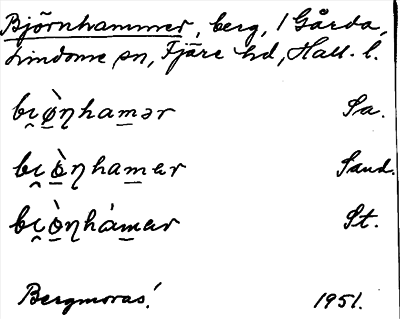 Björnhammer, berg, i Gårda,
Lindome sn, Fjäre hd, Hall. l.
bi̯ø̀ɳham̲ər Sa.
bi̯ò̲ɳham̲er Sand.
bi̯ò̲ɳhàm̲ar St.
Bergmoras! 1951.